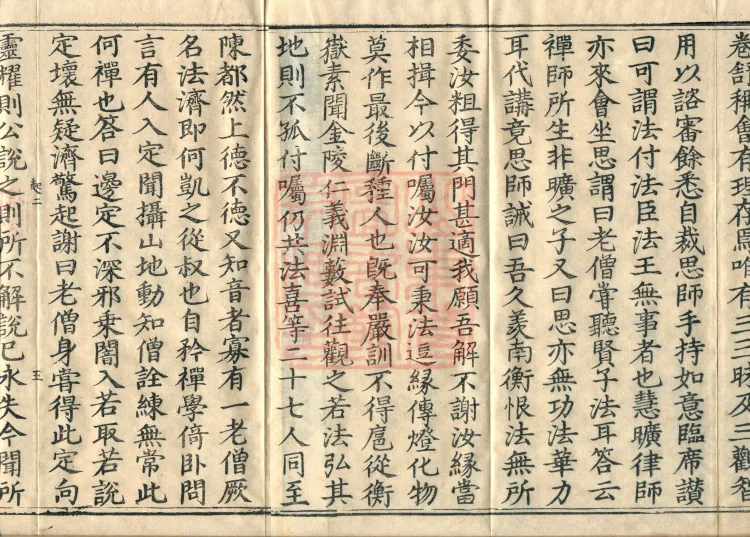 卷舒稱會有理存焉唯有三三昧及三觀智
用以諮審餘悉自裁思師手持如意臨席讃
曰可謂法付法臣法王無事者也慧曠律師
亦來會坐思謂曰老僧嘗聽賢子法耳答云
禪師所生非曠之子又曰思亦無功法華力
耳代講竟思師誡曰吾久羨南衡恨法無所
委汝粗得其門甚適我願吾解不謝汝緣當
相揖今以付囑汝汝可秉法逗緣傳燈化物
莫作最後斷種人也旣奉嚴訓不得扈從衡
嶽素聞金陵仁義淵藪試往觀之若法弘其
地則不孤付囑仍共法喜等二十七人同至
陳都然上徳不徳又知音者寡有一老僧厥
名法濟即何凱之從叔也自矜禪學倚卧問
言有人入定聞攝山地動知僧詮練無常此
何禪也答曰邊定不深邪乗闇入若取若說
定壞無疑濟驚起謝曰老僧身嘗得此定向
靈耀則公說之則所不解說已永失今聞所
起二
五